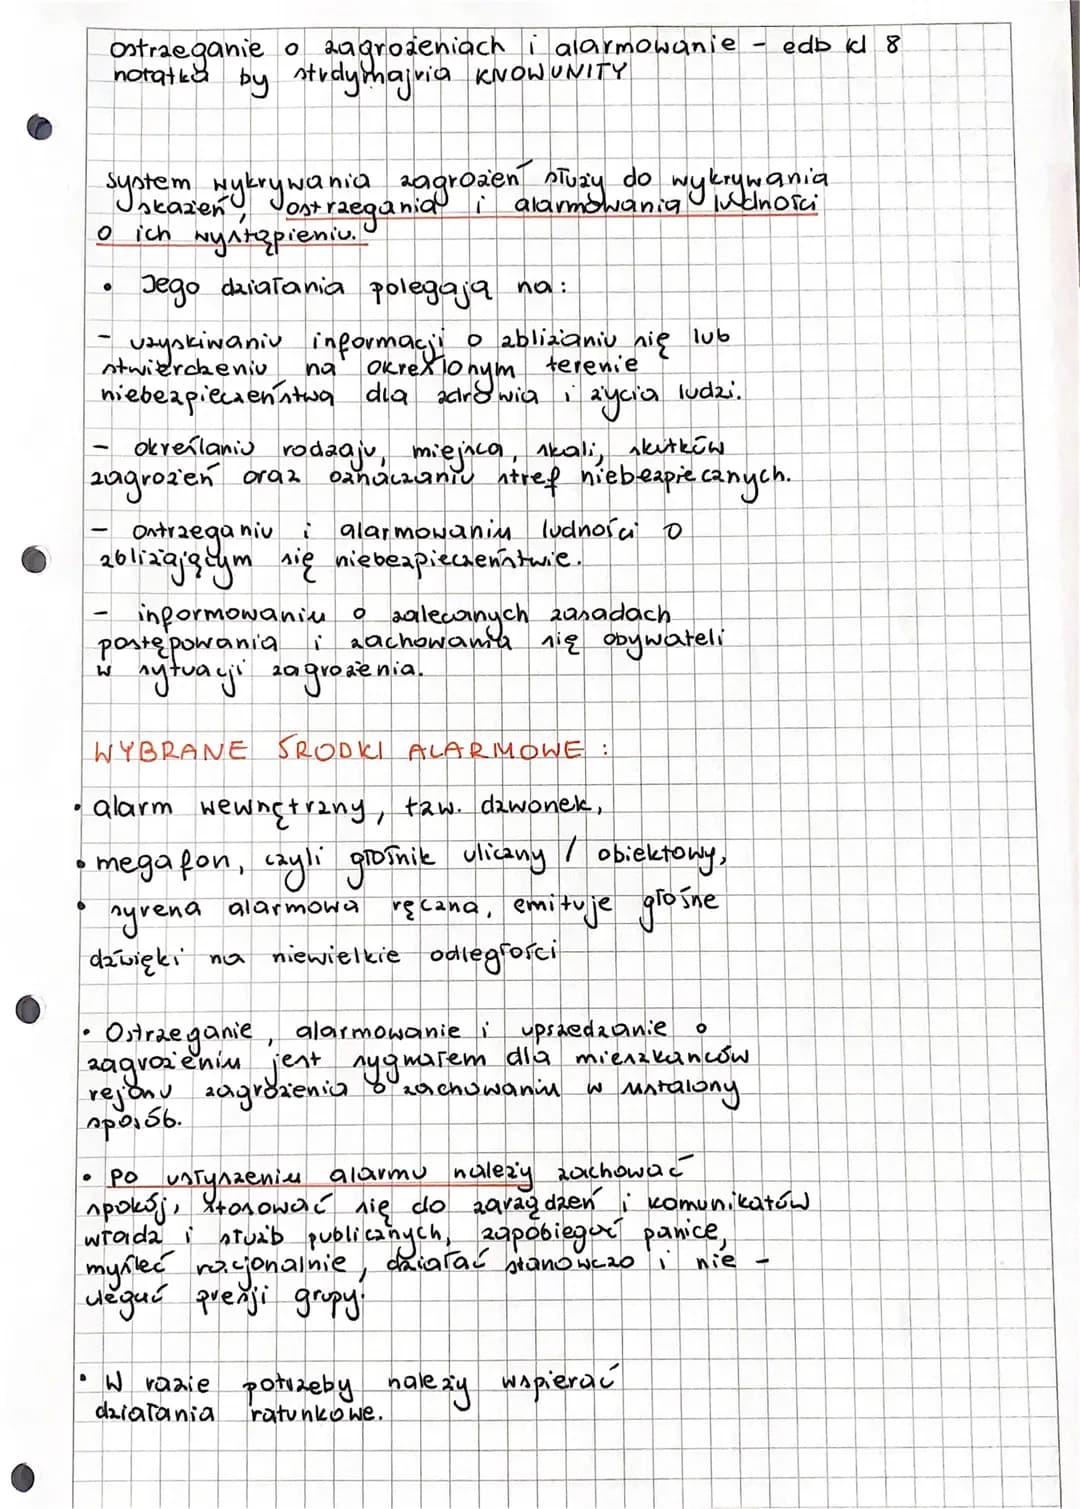 ostrzeganie o zagrożeniach i alarmowanie - edb kl 8
notatka by studymajvia KNOWUNITY
system wykrywania zagrożeń służy do wykrywania
skażeń, ostrzegania i alarmowania ludności
o ich wystąpieniu.
• Jego działania polegają na:
- uzyskiwaniu informacji o zbliżaniu się lub
stwierdzeniu na określonym terenie
niebezpieczeństwa dla zdrowia i życia ludzi.
- określaniu rodzaju, miejsca, skali, skutków
zagrożeń oraz oznaczaniu stref niebezpiecznych.
- ostrzeganiu i alarmowaniu ludności o
zbliżającym się niebezpieczeństwie.
- informowaniu o zalecanych zasadach
postępowania i zachowania się obywateli
w sytuacji zagrożenia.
WYBRANE ŚRODKI ALARMOWE :
• alarm wewnętrzny, tzw. dzwonek,
• megafon, czyli głośnik uliczny / obiektowy,
• syrena alarmowa ręczna, emituje głośne
dźwięki na niewielkie odległości
• Ostrzeganie, alarmowanie i uprzedzanie o
zagrożeniu jest sygnałem dla mieszkańców
rejonu zagrożenia o zachowaniu w ustalony
sposób.
• Po usłyszeniu alarmu należy zachować
spokój, stosować się do zarządzeń i komunikatów
władz i służb publicznych, zapobiegać panice,
myśleć racjonalnie, działać stanowczo i nie -
ulegać presji grupy.
• W razie potrzeby należy wspierać
działania ratunkowe.